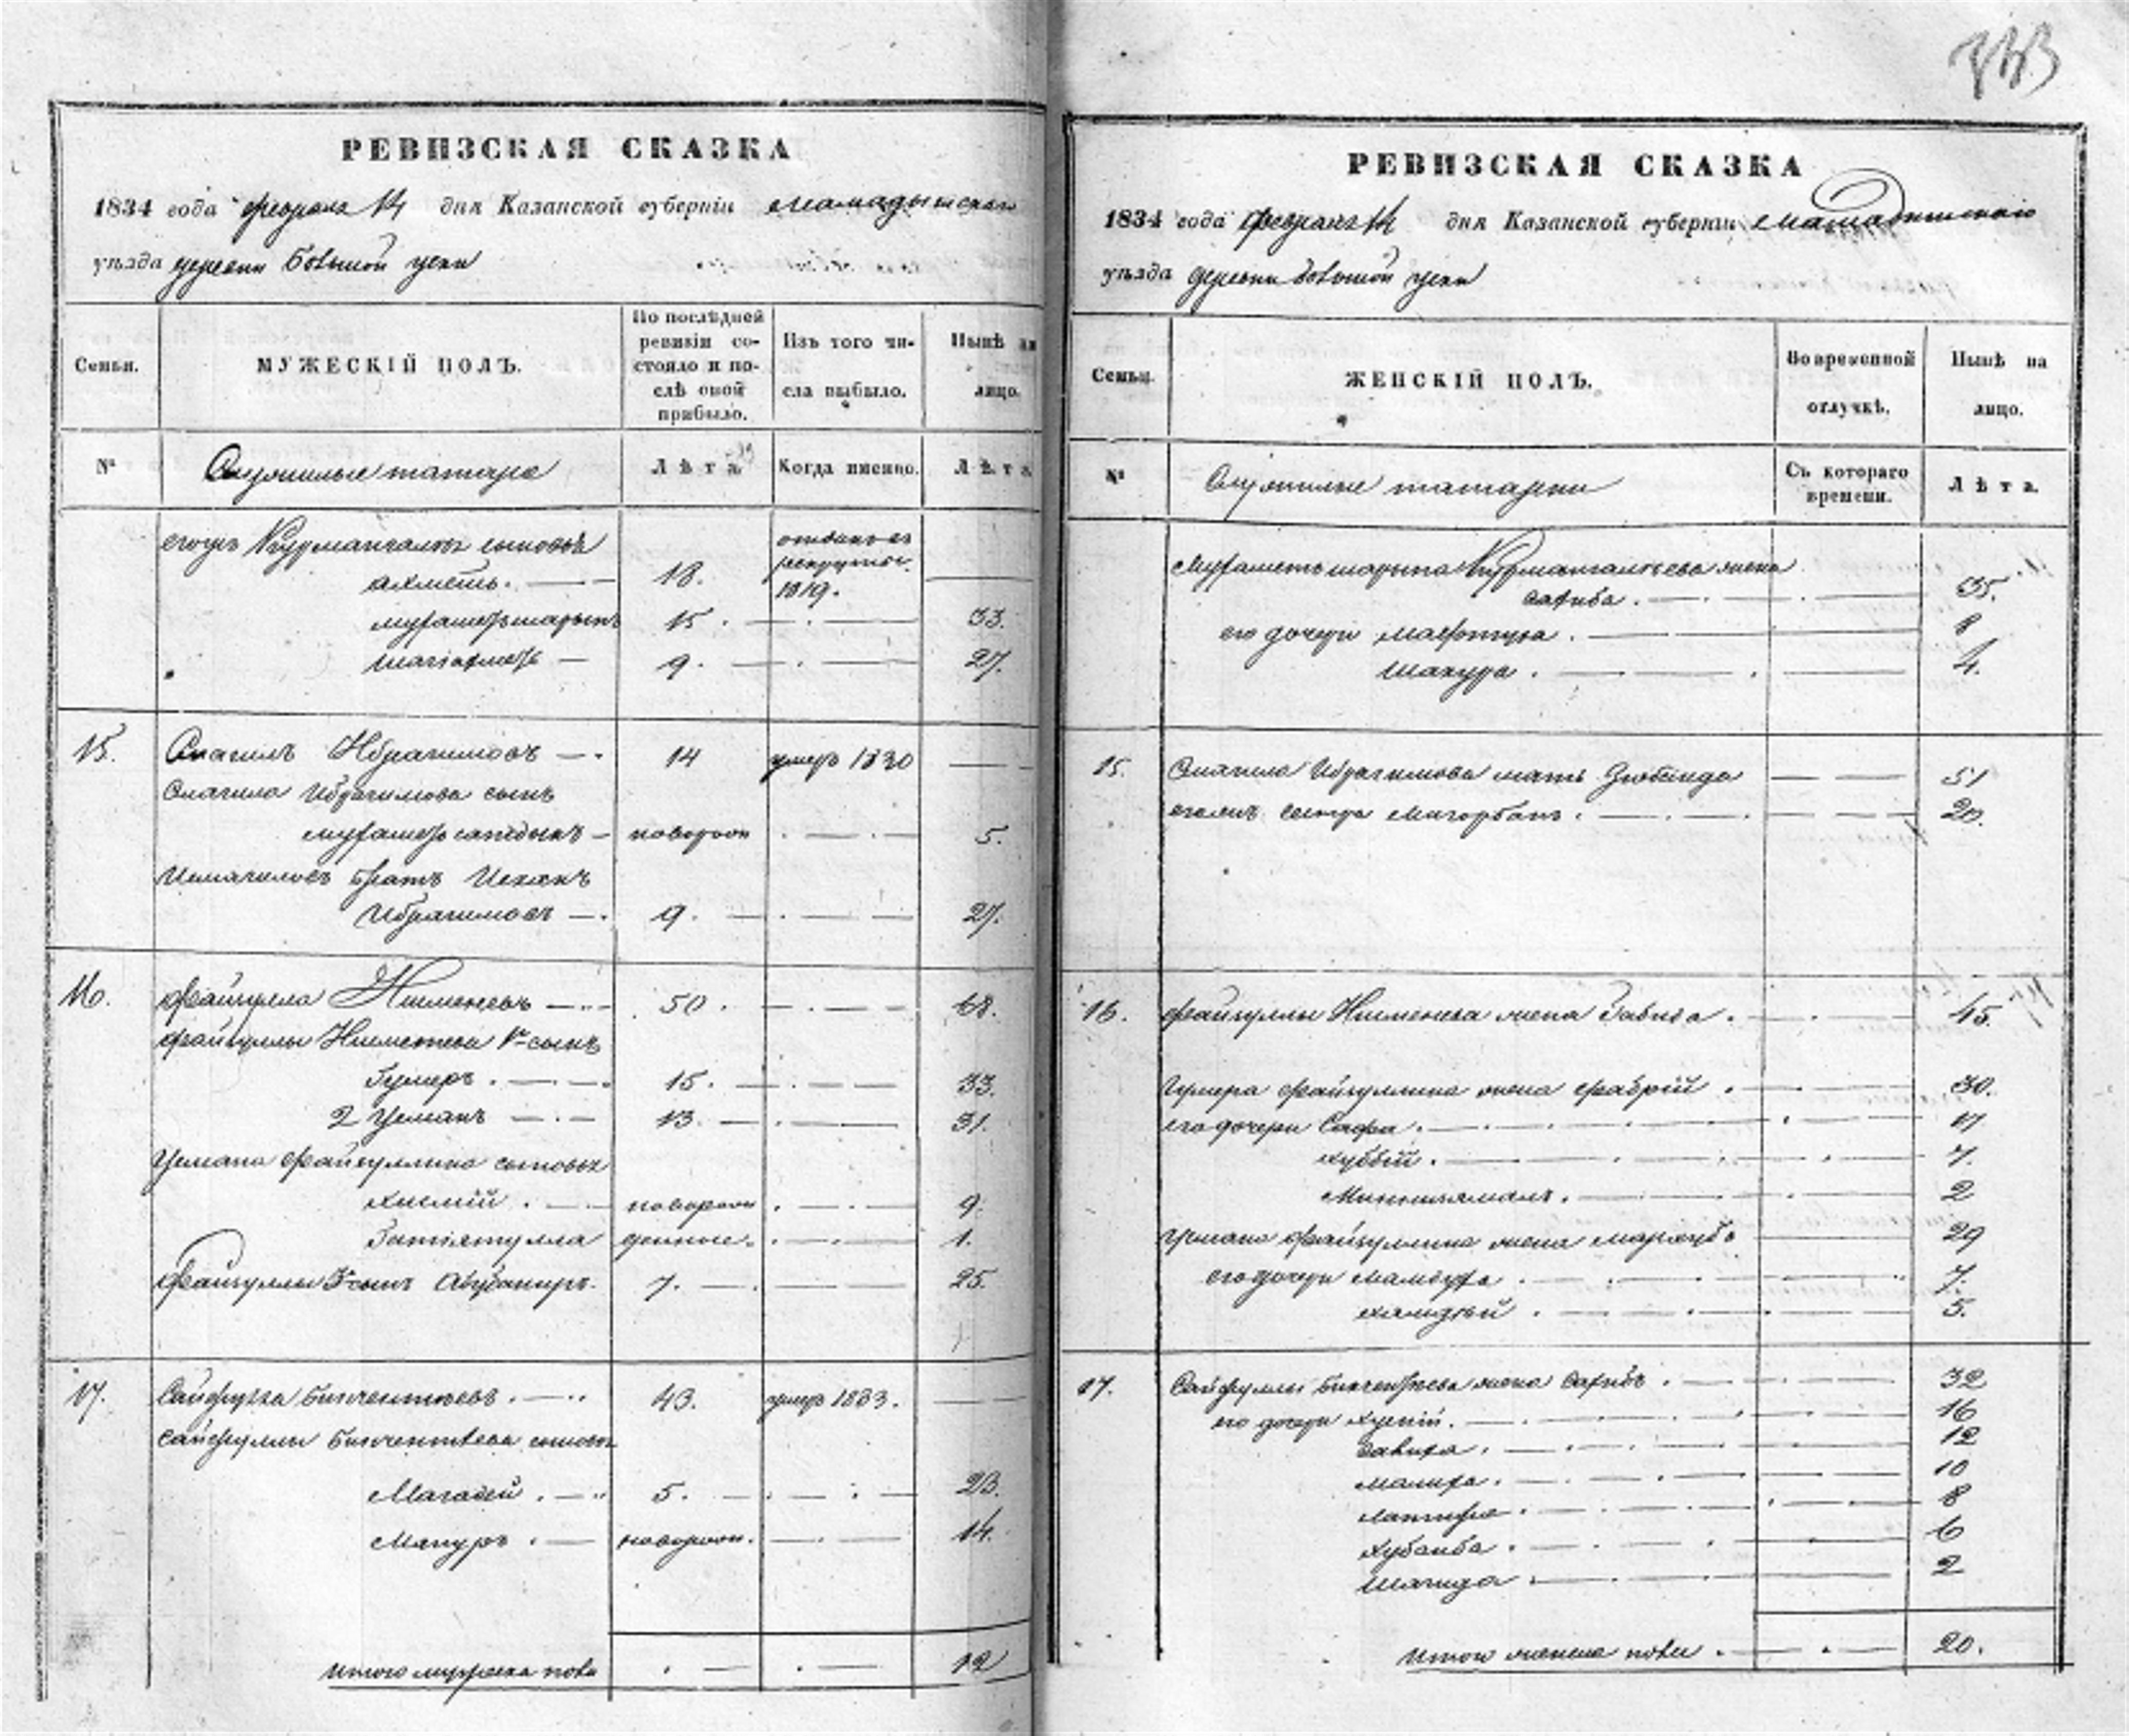 РЕВИЗСКАЯ СКАЗКА
1834 года февраля 14 дня Казанской губерніи Мамадышскаго
уѣзда деревни Большой
Семьи.
МУЖЕСКІЙ ПОЛЪ.
По послѣдней ревизіи со-
стояло и по-
слѣ оной
прибыло.
Изъ того чи-
сла выбыло.
Нынѣ на
лицо.
№
Служилые татаре
Лѣта
Когда именно.
Лѣта
егожъ Курмангалѣя сыновья
ахметь. 18. отданъ въ рекруты 1819.
мухаметьшарыпъ 15. 33.
шагіахметь 9. 27.
15. Смагилъ Ибрагимовъ 14 умеръ 1830
Смагила Ибрагимова сынъ
мухаметьсатдыкъ новорож 5.
Исмагиловъ братъ Исхакъ
Ибрагимовъ 9. 27.
16. Файзулла Ишменевъ 50. 68.
Файзуллы Ишменева 1й сынъ
Гумеръ. 15. 33.
2 Усманъ 13. 31.
Усмана Файзуллина сыновья
новорож 9.
денные. 1.
Файзуллы 3й сынъ Абубакиръ. 7. 25.
17. Сайфулла Бикчентѣевъ. 43. умеръ 1833.
Сайфуллы Бикчентѣева сыновья
Магадей. 5. 23.
Мануръ. новорож. 14.
Итого мужеска пола 12
РЕВИЗСКАЯ СКАЗКА
1834 года февраля 14 дня Казанской губерніи Мамадышскаго
уѣзда деревни Большой
Семьи.
ЖЕНСКІЙ ПОЛЪ.
Во временной
отлучкѣ.
Нынѣ на
лицо.
№
Служилые татарки
Съ котораго
времени.
Лѣта.
Мухаметьшарыпа Курмангалѣева жена
сахиба. 35.
его дочери 8
Шакура. 4.
15. Смагила Ибрагимова мать Зюбаида 51
сестра 20.
16. Файзуллы Ишменева жена Габида. 45.
Гумера Файзуллина жена 30.
его дочери Сафа. 11
хуббій. 7.
Минниямалъ. 2
Усмана Файзуллина жена 29
его дочери 7.
5.
17. Сайфуллы Бикчентѣева жена сахибъ. 32
его дочери хусній. 16
12
малиха. 10
латифа. 8
хубаиба. 6
шагида. 2
Итого женска пола. 20.